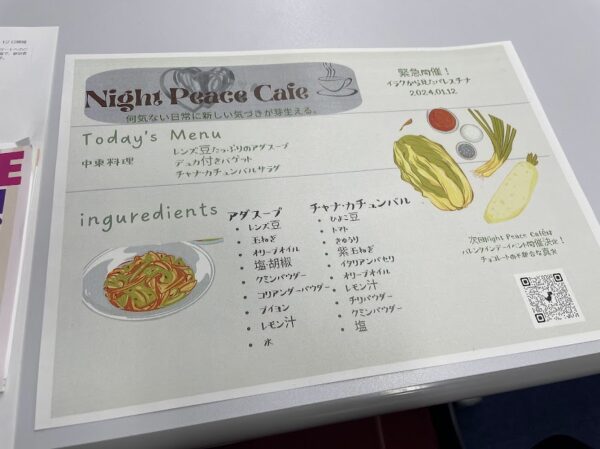 Night Peace Cafe
何気ない日常に新しい気づきが芽生える。
緊急開催!
イラクから見たパレスチナ
2024.01.12
Today's Menu
中東料理
レンズ豆たっぷりのアダスープ
デュカ付きバゲット
チャナ・カチュンバルサラダ
inguredients
アダスープ
• レンズ豆
• 玉ねぎ
• オリーブオイル
• 塩・胡椒
• クミンパウダー
• コリアンダーパウダー
• ブイヨン
• レモン汁
• 水
チャナ・カチュンバル
• ひよこ豆
• トマト
• きゅうり
• 紫玉ねぎ
• イタリアンパセリ
• オリーブオイル
• レモン汁
• チリパウダー
• クミンパウダー
• 塩
次回Night Peace Cafeは
バレンタインデーイベント開催決定!
チョコレートの不都合な真実